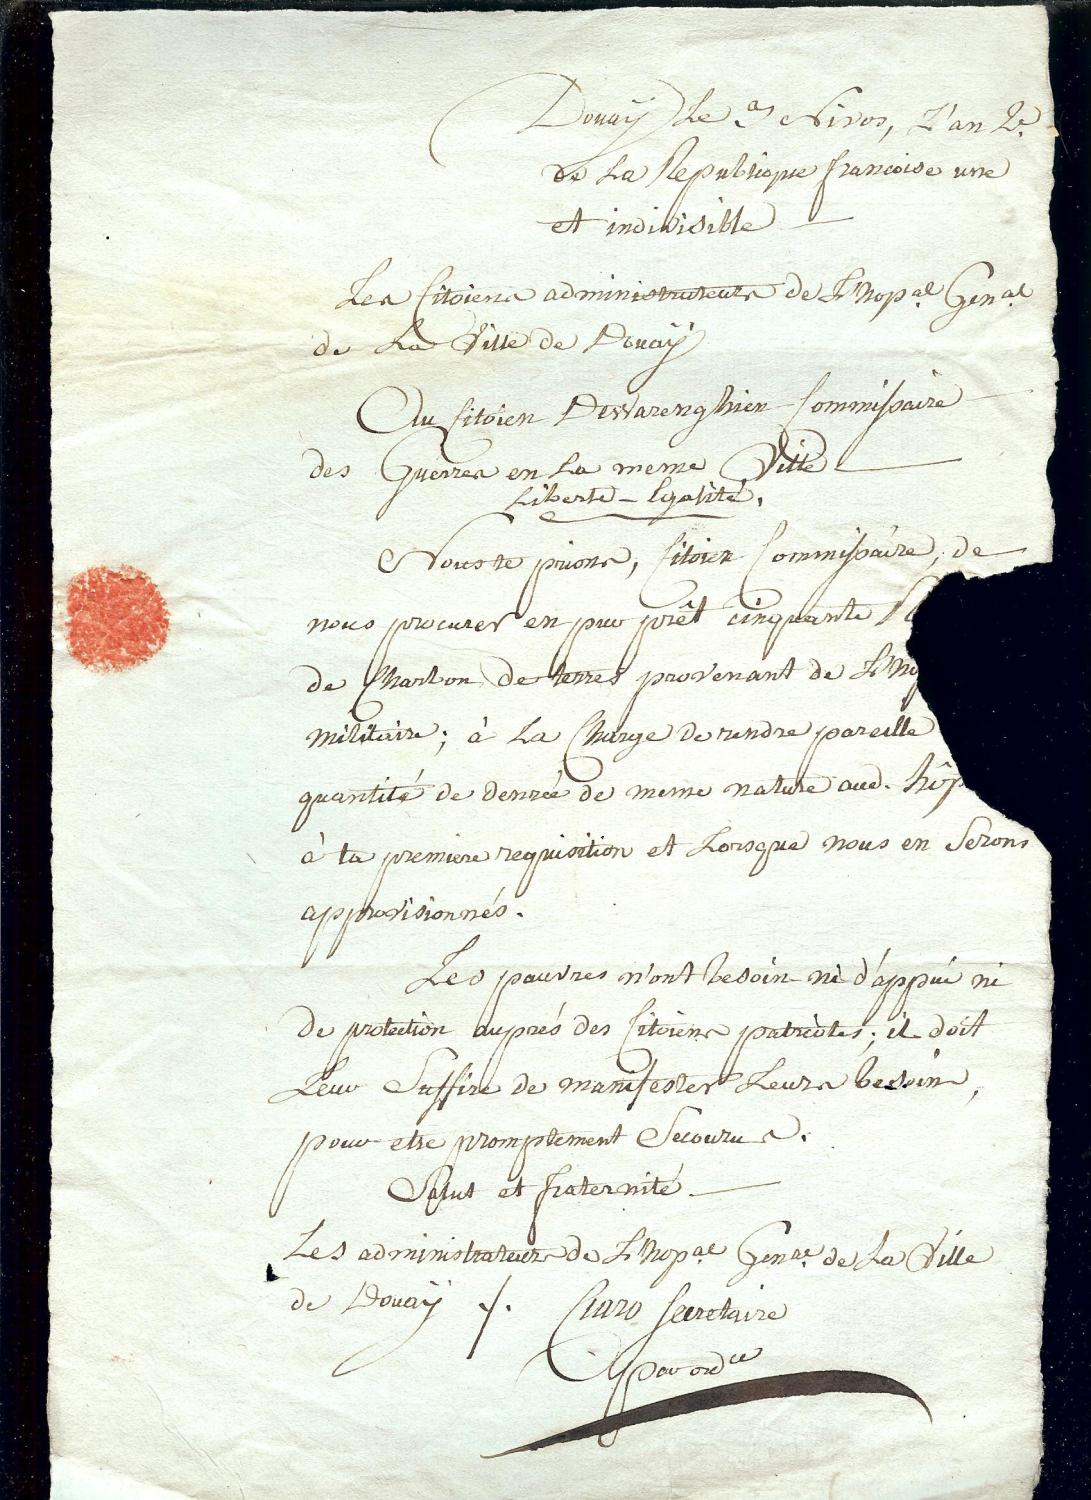 Douaÿ Le Nivos, L'an 2e
de La Republique francoise une
et indivisible
Les Citoiens administrateurs de L'hopal Genal
de La Ville de Douaÿ
Au Citoien DeWarenghien Commissaire
des Guerres en La meme Ville
Liberté - Egalité.
Nous te prions, Citoien Commissaire, de
nous procurer en pur prêt cinquante
de Charbon de terres provenant de L'hop
militaire; à La Charge de rendre pareille
quantité de denrée de meme nature aud. hôp
à ta premiere requisition et Lorsque nous en Serons
approvisionnés.
Les pauvres n'ont besoin ni d'appui ni
de protection auprés des Citoiens patriotes; il doit
Leur Suffire de manifester Leurs besoins,
pour etre promptement Secourus.
Salut et fraternité
Les administrateurs de L'hopal Genal de La Ville
de Douaÿ /. Ciaro Secretaire
par ordce